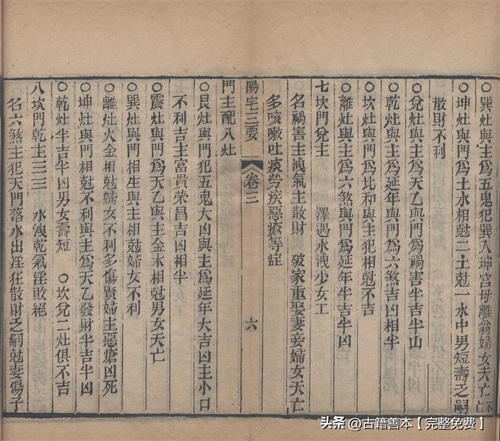 〇巽灶與主為五鬼犯巽入坤宮母離翁婦女夭亡
〇坤灶與門為土水相尅二土尅一水中男短壽乏嗣
散財不利
〇兌灶與主為天乙與門為禍害半吉半凶
〇乾灶與主為延年與門為六煞吉凶相半
〇坎灶與門為比和與主犯相尅不吉
〇離灶與主為六煞與門為延年半吉半凶
七坎門兌主 澤遇水洩少女亡
名禍害主洩氣主散財 破家重娶妻妾婦女夭亡
多咳嗽吐痰勞疾惡瘡等症
陽宅三要 卷三 六
門主配八灶
〇艮灶與門犯五鬼大凶與主為延年大吉凶主小口
不利吉主富貴榮昌吉凶相半
〇震灶與門為天乙與主金木相尅男女夭亡
〇巽灶與門相生與主相尅婦女不利
〇離灶火金相尅婦女不利多傷賢婦主惡瘡凶死
〇坤灶與門相尅不利與主為天乙發財半吉半凶
〇乾灶半吉半凶男女壽短 〇坎兌二灶俱不吉
八坎門乾主 水洩乾氣淫敗絕
名六煞主犯天門落水出淫狂散財乏嗣尅妻傷子
头条 @古籍善本【完整免费】